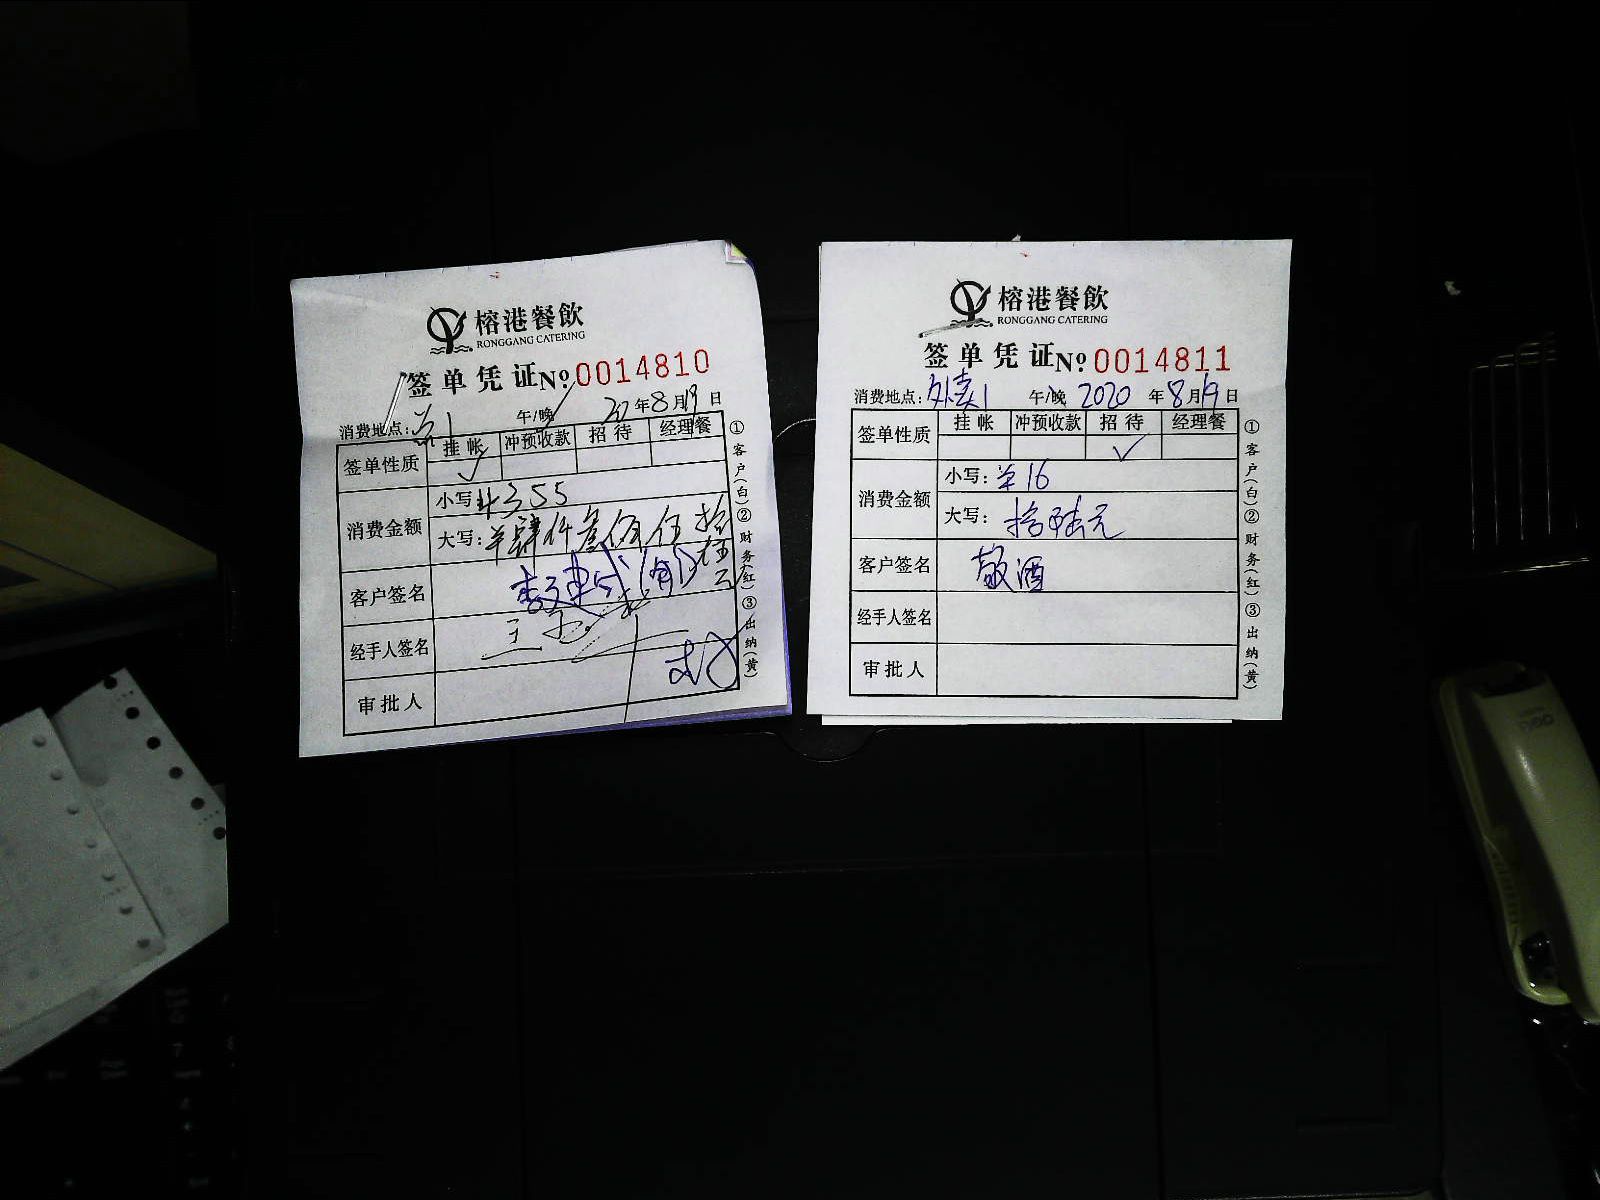 榕港餐飲
RONGGANG CATERING
签单凭证 No 0014810
消费地点： 午/晚 20年8月19日
签单性质 挂帐 冲预收款 招待 经理餐
✓
消费金额 小写：¥4355
大写：肆仟叁佰伍拾伍元
客户签名
经手人签名
审批人
①客户(白)②财务(红)③出纳(黄)
榕港餐飲
RONGGANG CATERING
签单凭证 No 0014811
消费地点：外卖1 午/晚 2020年8月19日
签单性质 挂帐 冲预收款 招待 经理餐
✓
消费金额 小写：¥16
大写：拾陆元
客户签名 敬酒
经手人签名
审批人
①客户(白)②财务(红)③出纳(黄)